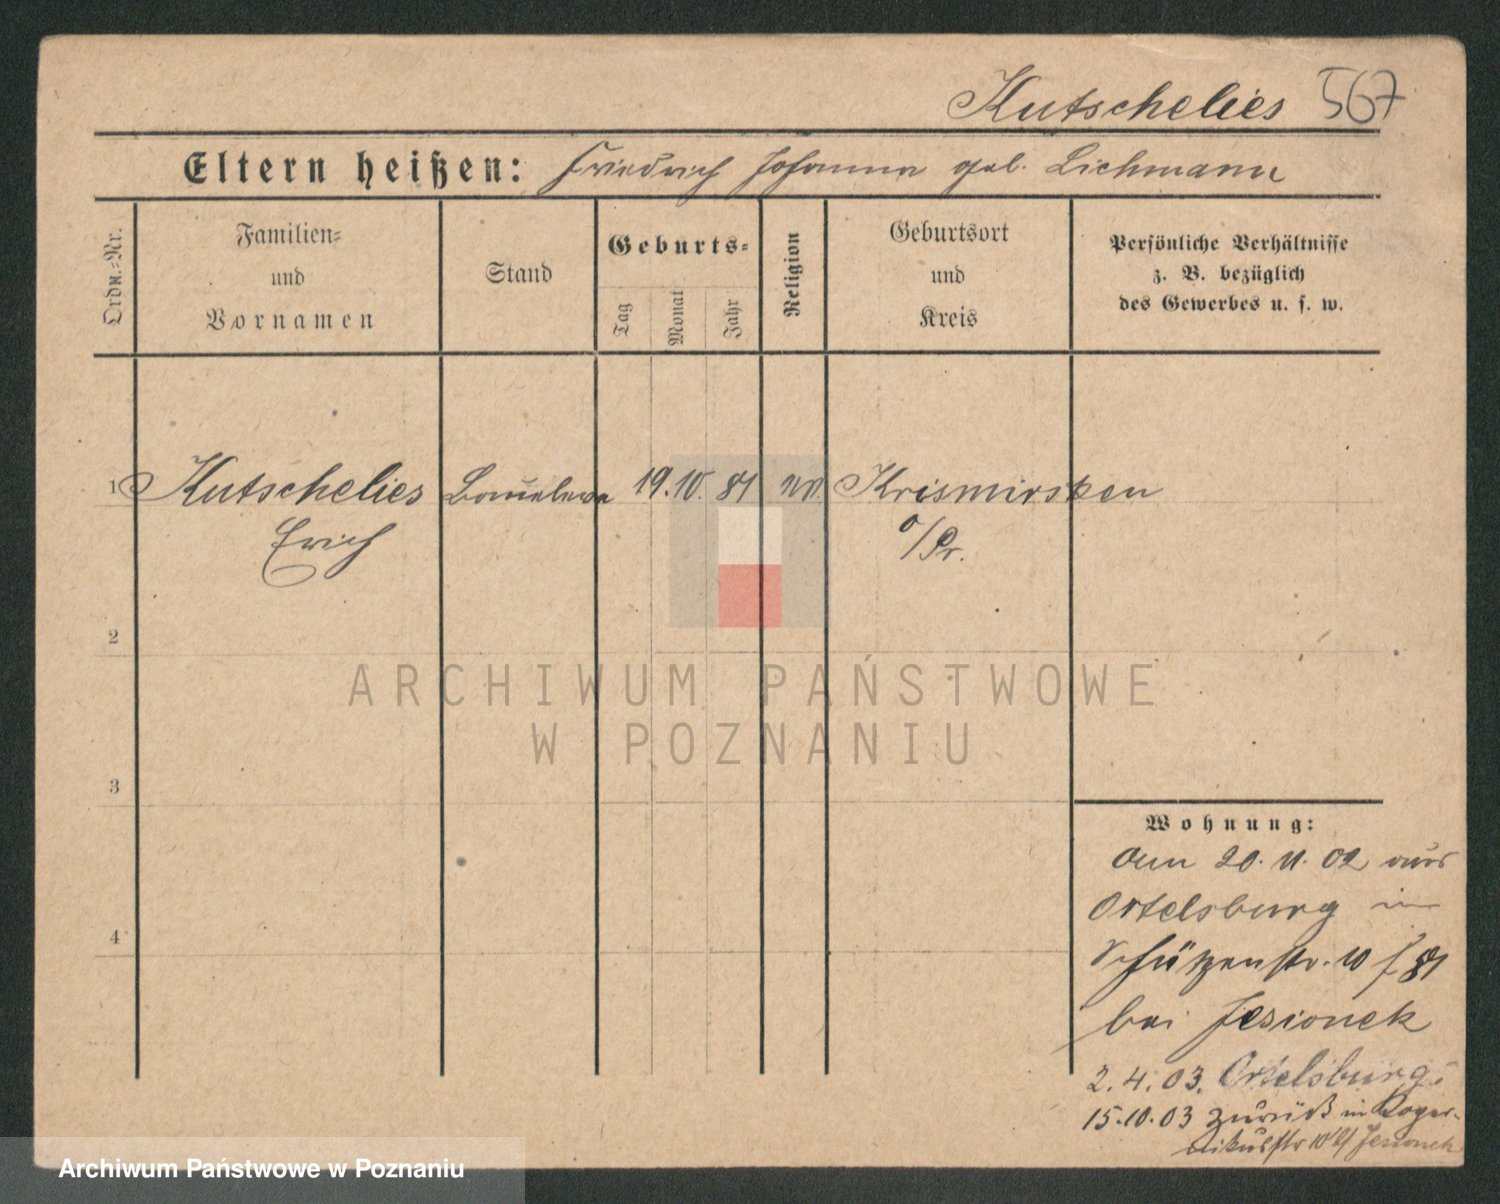 Kutschelies 567
Eltern heißen: Friedrich Johanna geb. Lichmann
Ordn.-Nr.
Familien-
und
Vornamen
Stand
Geburts-
Tag
Monat
Jahr
Religion
Geburtsort
und
Kreis
Persönliche Verhältnisse
z. B. bezüglich
des Gewerbes u. s. w.
1 Kutschelies 19. 10. 81 Krismirsken
Erich o/Pr.
2
3
4
ARCHIWUM PAŃSTWOWE
W POZNANIU
Wohnung:
Am 20. 11. 02 aus
Ortelsburg in
Schützenstr. 10
bei Jesionek
2. 4. 03. Ortelsburg
15. 10. 03 zurück in
Jesionek
Archiwum Państwowe w Poznaniu